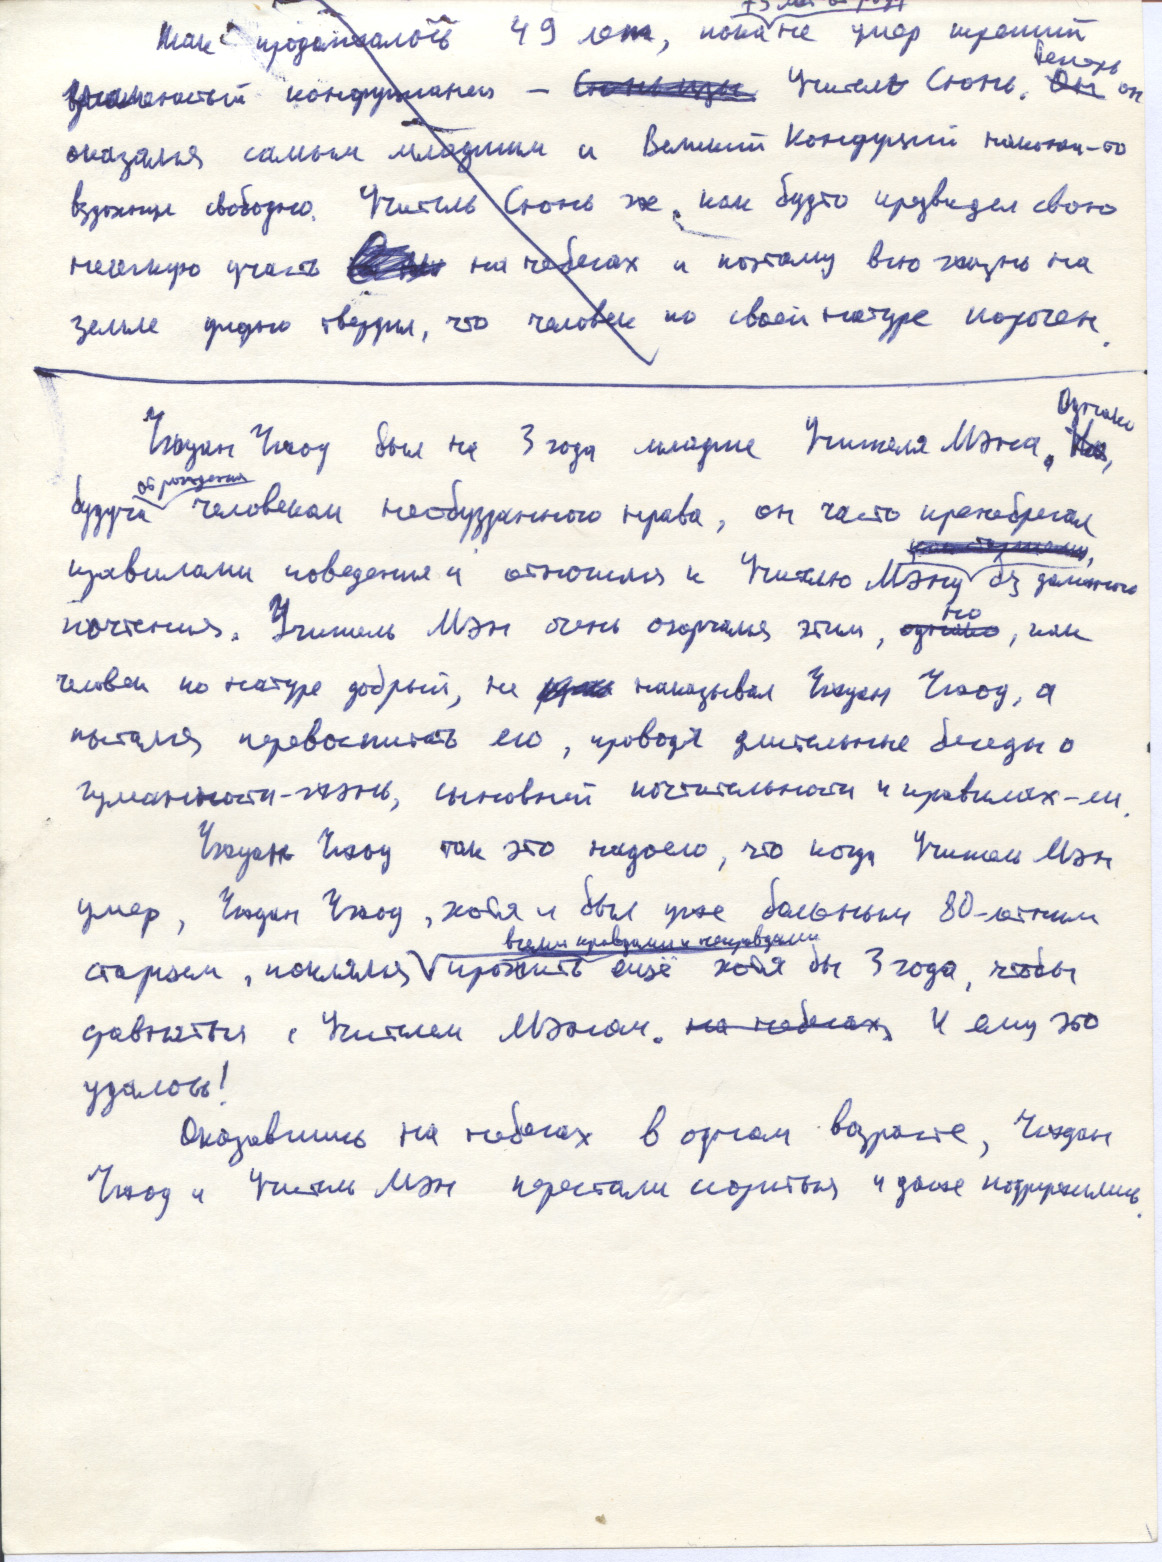 73 лет от роду
Так продолжалось 49 лет, пока не умер третий
теперь
конфуцианец – Сюнь-цзы Учитель Сюнь. Он он
оказался самым младшим и Великий Конфуций наконец-то
вздохнул свободно. Учитель Сюнь же, как будто предвидел свою
нелегкую участь на небесах и поэтому всю жизнь на
земле твердил, что человек по своей натуре порочен.
Однако
Чжуан Чжоу был на 3 года младше Учителя Мэна. Но,
от рождения
будучи человеком необузданного нрава, он часто пренебрегал
правилами поведения и относился к Учителю Мэну без должного
но
почтения. Учитель Мэн очень огорчался этим, однако, как
человек по натуре добрый, не наказывал Чжуан Чжоу, а
пытался перевоспитать его, проводя длительные беседы о
гуманности-жэнь, сыновней почтительности и правилах-ли.
Чжуан Чжоу так это надоело, что когда Учитель Мэн
умер, Чжуан Чжоу, хотя и был уже больным 80-летним
всеми правдами и неправдами
старцем, поклялся прожить ещё хотя бы 3 года, чтобы
сравняться с Учителем Мэном. на небесах, И ему это
удалось!
Оказавшись на небесах в одном возрасте, Чжуан
Чжоу и Учитель Мэн перестали ссориться и даже подружились.